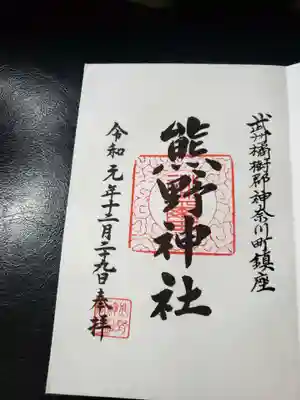 武州橘樹郡神奈川町鎮座
熊野神社
令和元年十二月二十九日奉拝